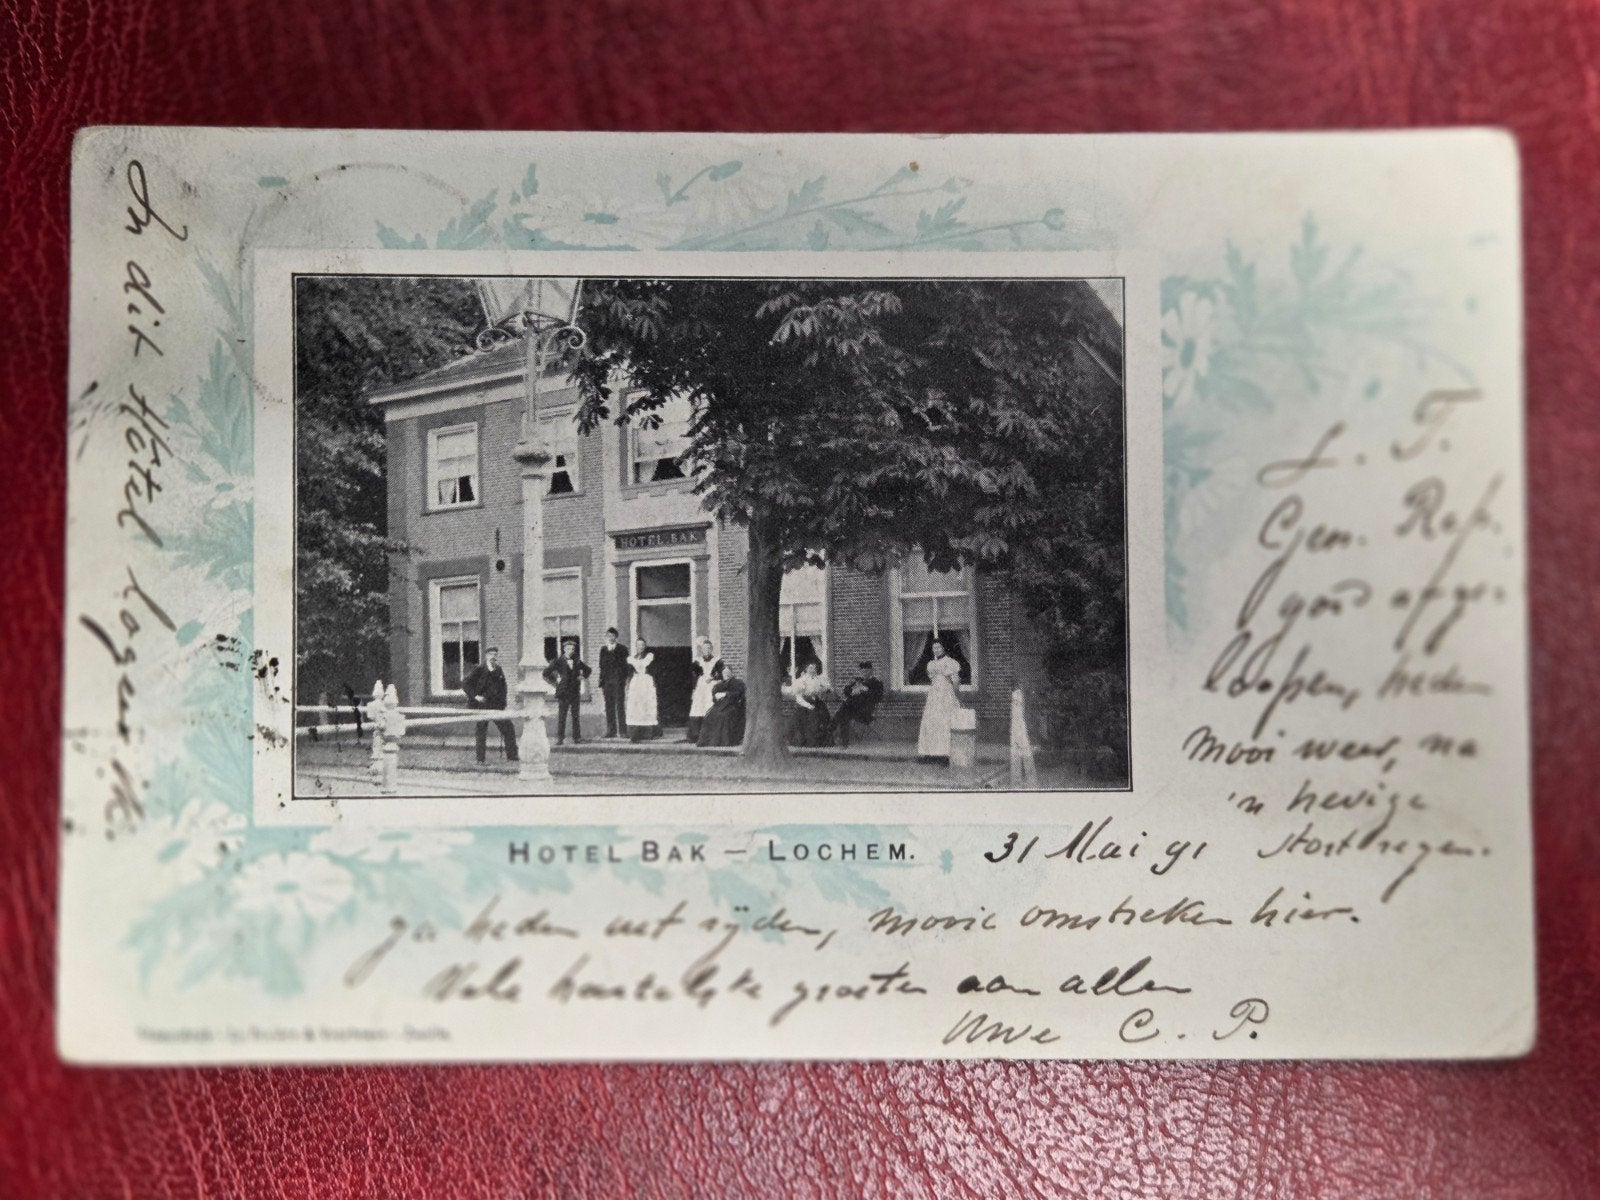 In dit Hotel logeer ik.
HOTEL BAK
L. T.
Gen. Rep.
goed afge-
loopen, heden
mooi weer, na
'n hevige
stortregen.
HOTEL BAK — LOCHEM.
31 Mai 91
ga heden uit rijden, mooie omstreken hier.
Vele hartelijke groeten aan allen
Uwe C. P.